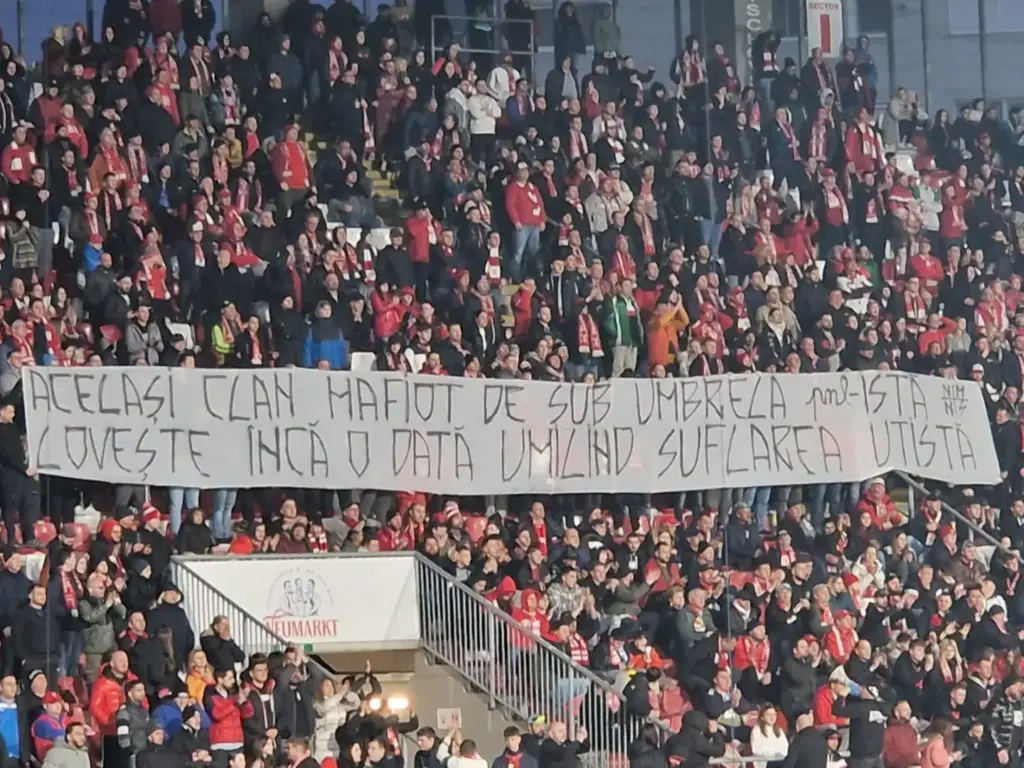 SECTOR
1
ACELAȘI CLAN MAFIOT DE SUB UMBRELA pnl-ISTĂ NIM NIS
LOVEȘTE ÎNCĂ O DATĂ UMILIND SUFLAREA UTISTĂ
NEUMARKT